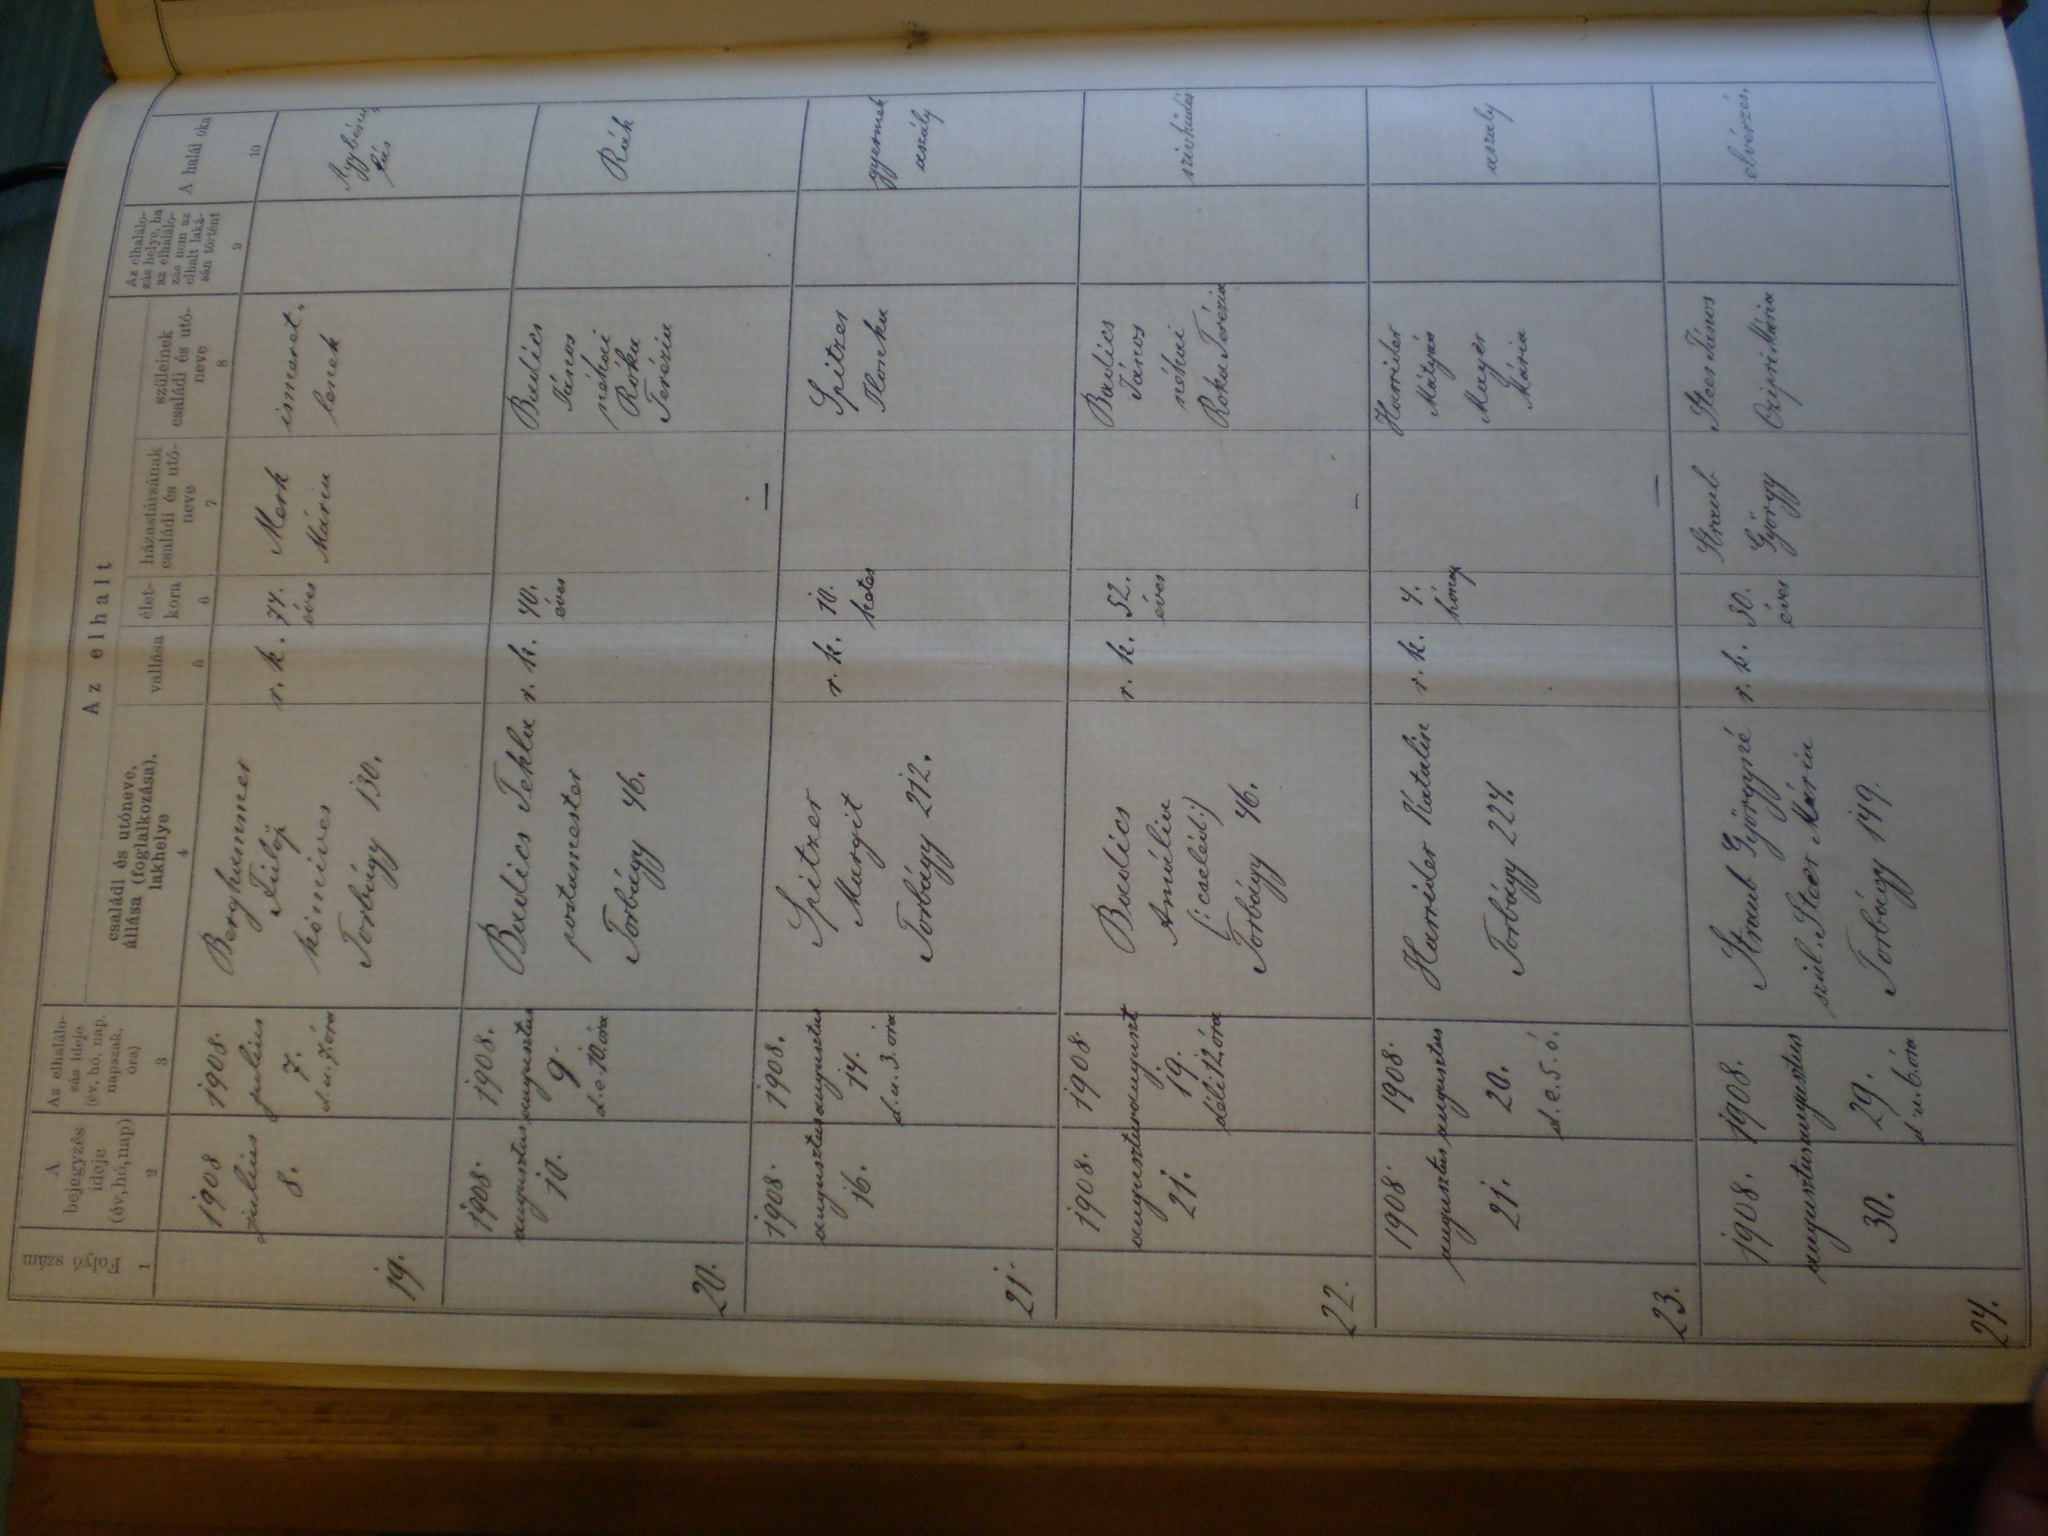 Az elhalt
Folyó szám
A bejegyzés ideje (év, hó, nap)
Az elhalálozás ideje (év, hó, nap, napszak, óra)
családi és utóneve, állása (foglalkozása), lakhelye
vallása
élet-kora
házastársának családi és utó-neve
szüleinek családi és utó-neve
Az elhalálo-zás helye, ha az elhalálo-zás nem az elhalt laká-sán történt
A halál oka
1 2 3 4 5 6 7 8 9 10
19.
1908
julius
8.
1908.
julius
7.
d.u. 7 óra
Berghammer
Fülöp
kőmives
Torbágy 130.
r. k.
74.
éves
Merk
Mária
ismeret.
lenek
20.
1908.
augusztus
10.
1908.
augusztus
9.
d.e. 10. óra
Badics Tekla
postamester
Torbágy 46.
r. k.
40.
éves
Badics
János
néhai
Róka
Terézia
Rák
21.
1908.
augusztus
16.
1908.
augusztus
14.
d.u. 3. óra
Spitzer
Margit
Torbágy 212.
r. k.
10.
hetes
Spitzer
Ilonka
gyermek
aszály
22.
1908.
augusztus
21.
1908
auguszt
19.
déli 12 óra
Badics
Amália
(: cseléd :)
Torbágy 46.
r. k.
52.
éves
Badics
János
néhai
Roka Terézia
szivhüdés
23.
1908.
augusztus
21.
1908.
augusztus
20.
d. e. 5. ó.
Harrider Katalin
Torbágy 227.
r. k.
4.
hónap
Harrider
Mátyás
Mayer
Mária
aszaly
24.
1908.
augusztus
30.
1908.
augusztus
29.
d. u. 6. óra
Straub Györgyné
szül. Steer Mária
Torbágy 149.
r. k.
30.
éves
Straub
György
Steer János
Mária
elvérzés.